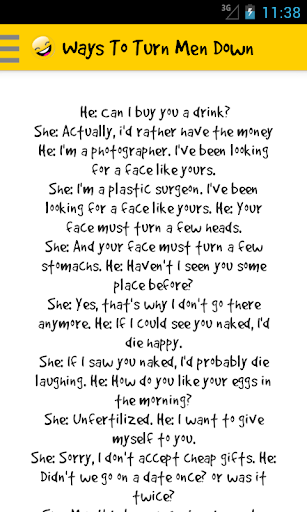 3G 11:38
Ways To Turn Men Down
He: Can I buy you a drink?
She: Actually, i'd rather have the money
He: I'm a photographer. I've been looking
for a face like yours.
She: I'm a plastic surgeon. I've been
looking for a face like yours. He: Your
face must turn a few heads.
She: And your face must turn a few
stomachs. He: Haven't I seen you some
place before?
She: Yes, that's why I don't go there
anymore. He: If I could see you naked, I'd
die happy.
She: If I saw you naked, I'd probably die
laughing. He: How do you like your eggs in
the morning?
She: Unfertilized. He: I want to give
myself to you.
She: Sorry, I don't accept cheap gifts. He:
Didn't we go on a date once? or was it
twice?